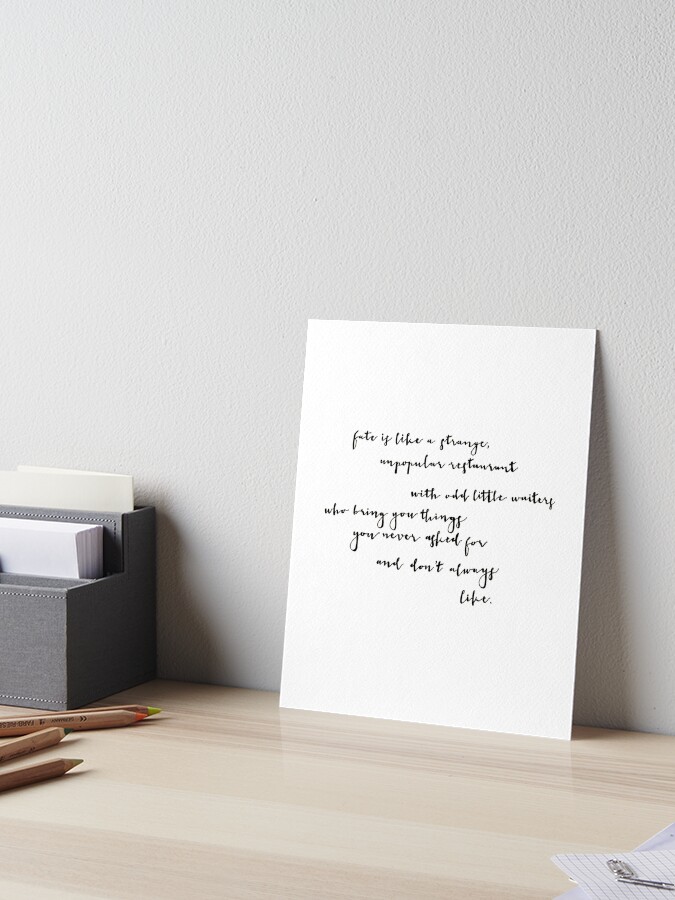 fate is like a strange,
unpopular restaurant
with odd little waiters
who bring you things
you never asked for
and don't always
like.